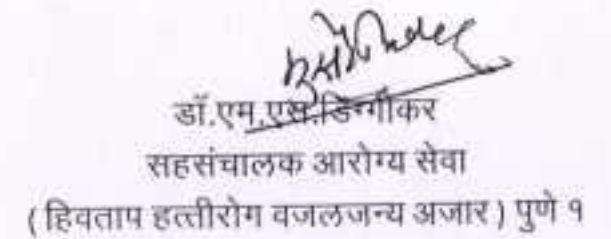 डॉ.एम.एस.डिग्गीकर
सहसंचालक आरोग्य सेवा
(हिवताप हत्तीरोग वजलजन्य अजार) पुणे १